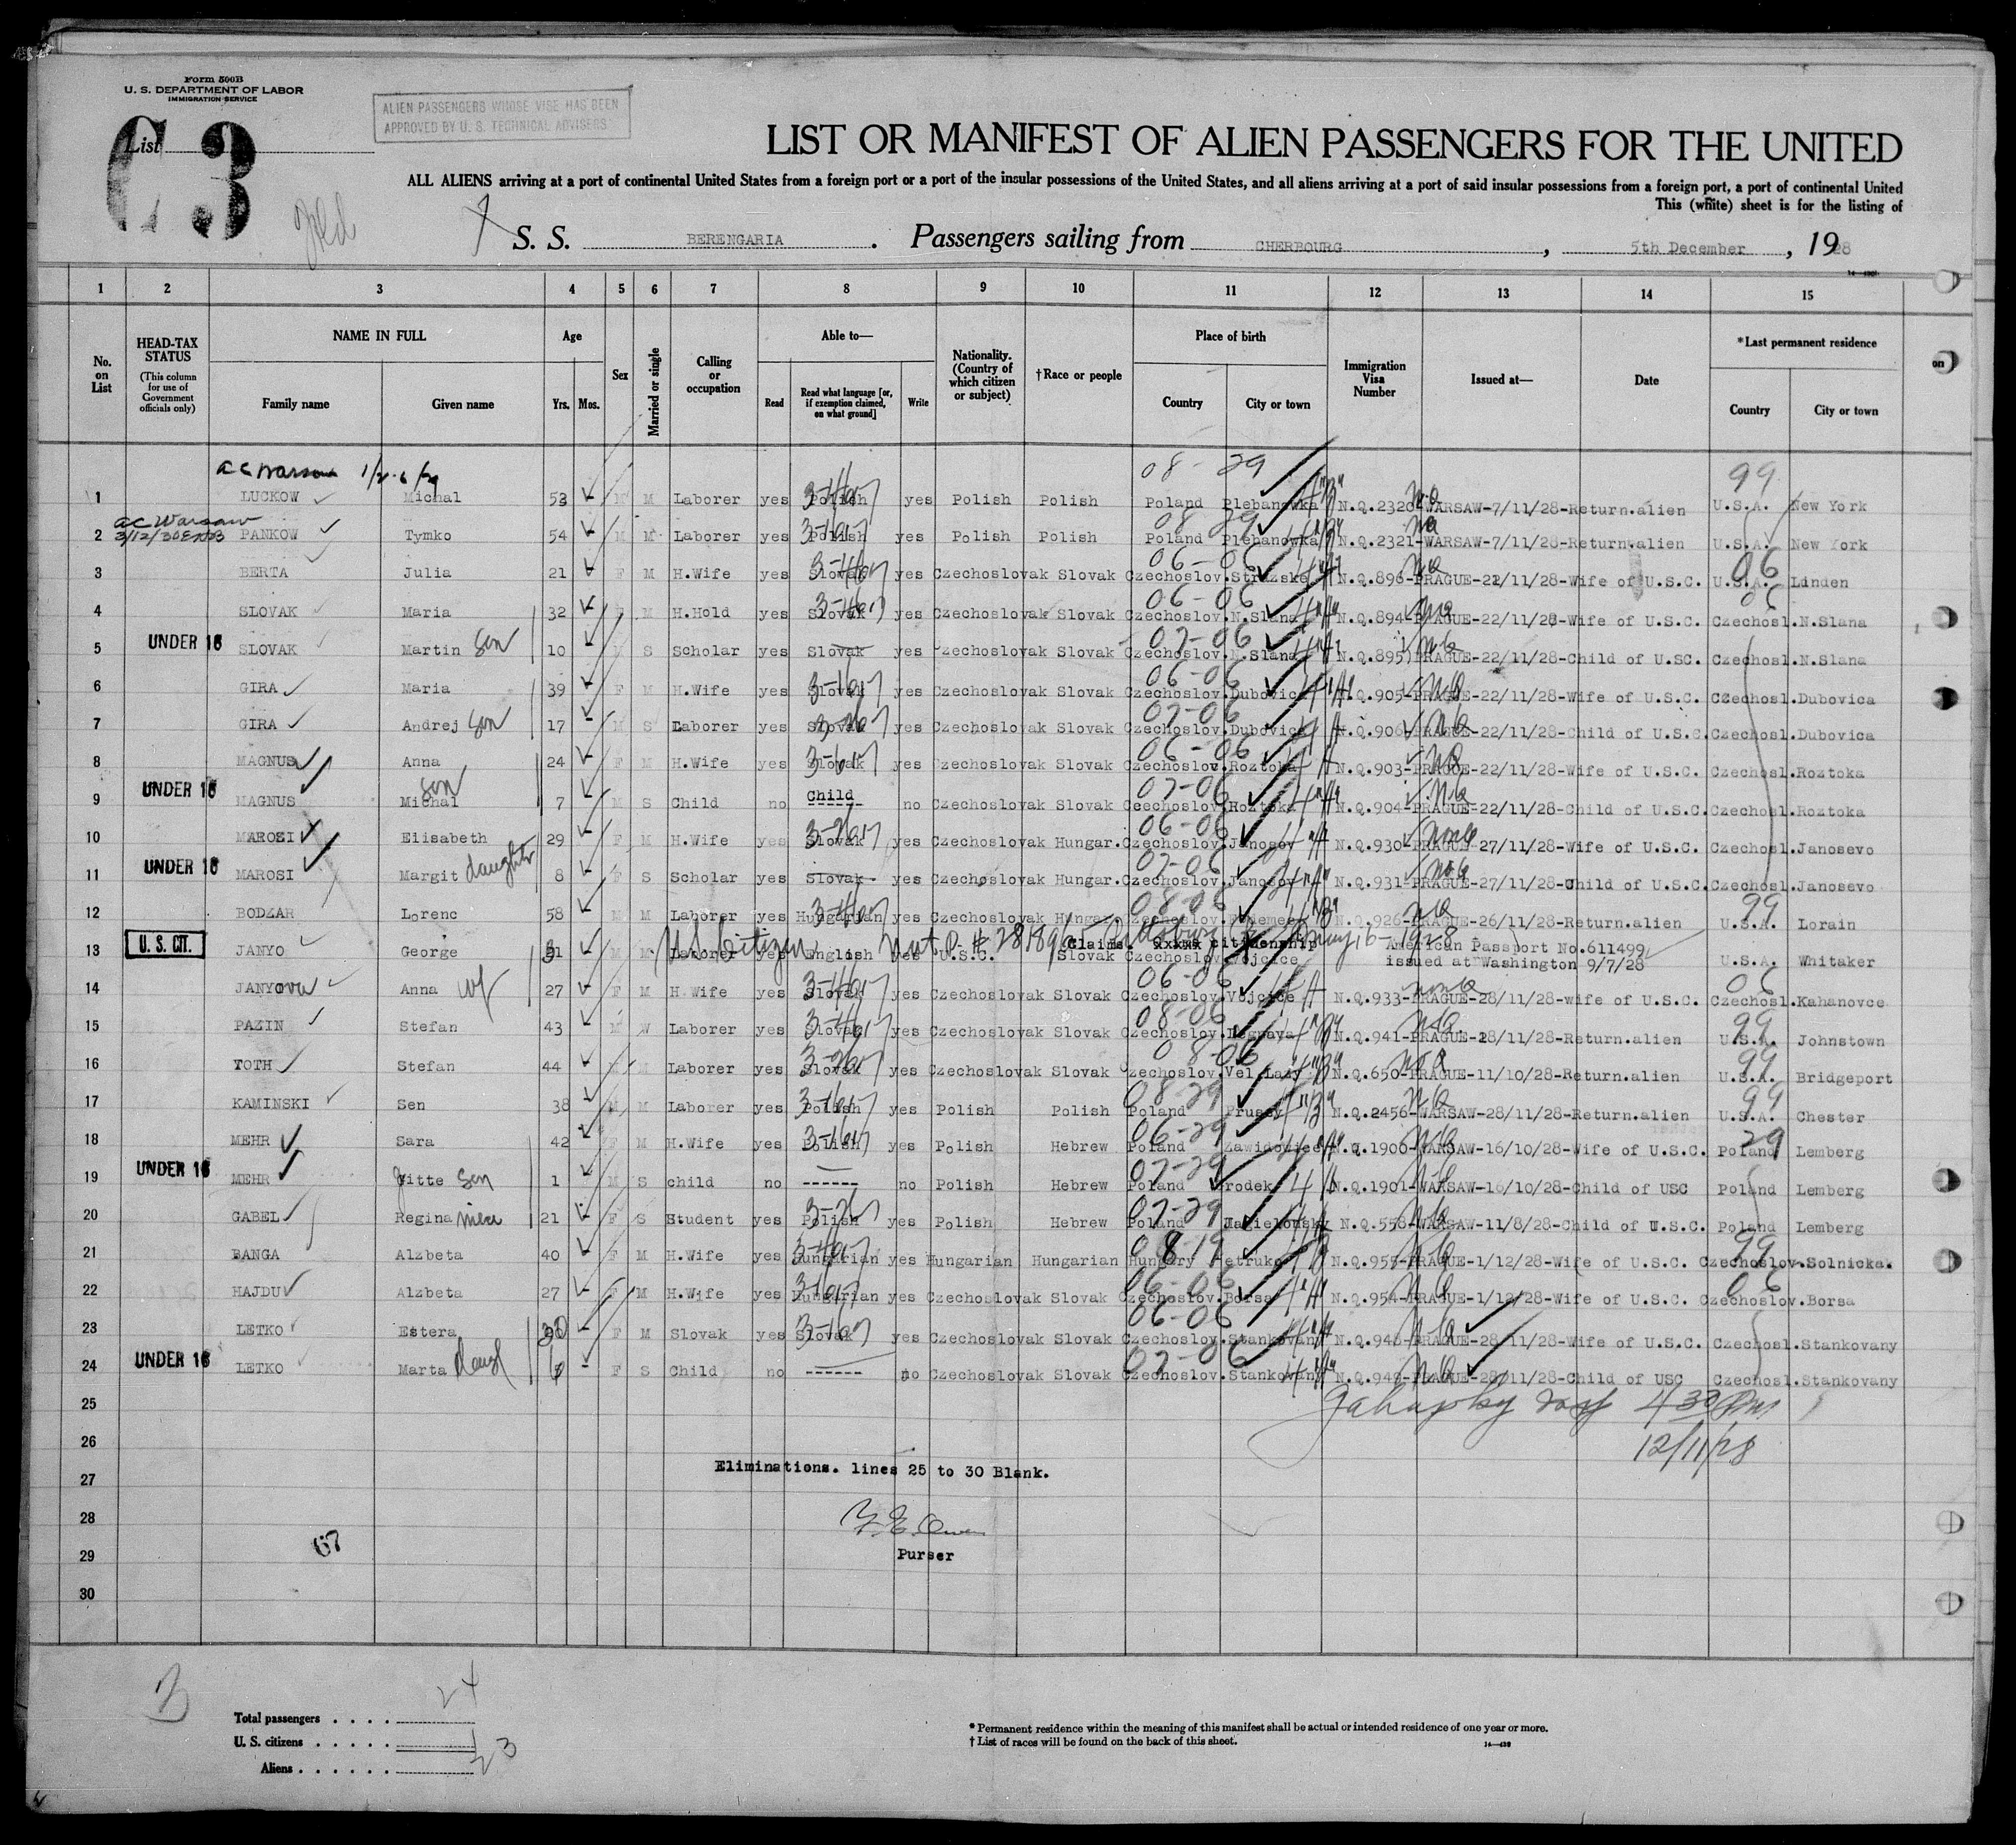 Form 500B
U. S. DEPARTMENT OF LABOR
IMMIGRATION SERVICE
ALIEN PASSENGERS WHOSE VISE HAS BEEN
APPROVED BY U. S. TECHNICAL ADVISERS
List
3
LIST OR MANIFEST OF ALIEN PASSENGERS FOR THE UNITED
ALL ALIENS arriving at a port of continental United States from a foreign port or a port of the insular possessions of the United States, and all aliens arriving at a port of said insular possessions from a foreign port, a port of continental United
This (white) sheet is for the listing of
S. S. BERENGARIA . Passengers sailing from CHERBOURG , 5th December , 1928
1 2 3 4 5 6 7 8 9 10 11 12 13 14 15
No. on List
HEAD-TAX STATUS (This column for use of Government officials only)
NAME IN FULL Family name Given name
Age Yrs. Mos.
Sex
Married or single
Calling or occupation
Able to— Read Read what language [or, if exemption claimed, on what ground] Write
Nationality. (Country of which citizen or subject)
†Race or people
Place of birth Country City or town
Immigration Visa Number
Issued at—
Date
*Last permanent residence Country City or town
on
ac Warsaw
1 LUCKOW Michal 53 M M Laborer yes Polish yes Polish Polish Poland Plebanowka N.Q.2320-WARSAW-7/11/28-Return.alien U.S.A. New York
ac Warsaw
2 PANKOW Tymko 54 M M Laborer yes Polish yes Polish Polish Poland Plebanowka N.Q.2321-WARSAW-7/11/28-Return.alien U.S.A. New York
3 BERTA Julia 21 F M H.Wife yes Slovak yes Czechoslovak Slovak Czechoslov.Strazske N.Q.896-PRAGUE-22/11/28-Wife of U.S.C. U.S.A. Linden
4 SLOVAK Maria 32 M H.Hold yes Slovak yes Czechoslovak Slovak Czechoslov.N.Slana N.Q.894-PRAGUE-22/11/28-Wife of U.S.C. Czechosl.N.Slana
UNDER 16
5 SLOVAK Martin son 10 S Scholar yes Slovak yes Czechoslovak Slovak Czechoslov.N.Slana N.Q.895-PRAGUE-22/11/28-Child of U.SC. Czechosl.N.Slana
6 GIRA Maria 39 F M H.Wife yes Slovak yes Czechoslovak Slovak Czechoslov.Dubovica N.Q.905-PRAGUE-22/11/28-Wife of U.S.C. Czechosl.Dubovica
7 GIRA Andrej son 17 M S Laborer yes Slovak yes Czechoslovak Slovak Czechoslov.Dubovica N.Q.906-PRAGUE-22/11/28-Child of U.S.C. Czechosl.Dubovica
8 MAGNUS Anna 24 F M H.Wife yes Slovak yes Czechoslovak Slovak Czechoslov.Roztoka N.Q.903-PRAGUE-22/11/28-Wife of U.S.C. Czechosl.Roztoka
UNDER 16
9 MAGNUS Michal son 7 M S Child no Child no Czechoslovak Slovak Czechoslov.Roztoka N.Q.904-PRAGUE-22/11/28-Child of U.S.C. Czechosl.Roztoka
10 MAROSI Elisabeth 29 F M H.Wife yes Slovak yes Czechoslovak Hungar. Czechoslov.Janosov N.Q.930-PRAGUE-27/11/28-Wife of U.S.C. Czechosl.Janosevo
UNDER 16
11 MAROSI Margit daughter 8 F S Scholar yes Slovak yes Czechoslovak Hungar. Czechoslov.Janosov N.Q.931-PRAGUE-27/11/28-Child of U.S.C. Czechosl.Janosevo
12 BODZAR Lorenc 58 M M Laborer yes Hungarian yes Czechoslovak Hungar. Czechoslov. N.Q.926-PRAGUE-26/11/28-Return.alien U.S.A. Lorain
U. S. CIT.
US Citizen Nat. May 16-1928
13 JANYO George 31 M M Laborer yes English yes U.S.C. Claims citizenship Slovak Czechoslov.Vojcice American Passport No.611499 issued at Washington 9/7/28 U.S.A. Whitaker
14 JANYOva Anna wf 27 F M H.Wife yes Slovak yes Czechoslovak Slovak Czechoslov.Vojcice N.Q.933-PRAGUE-28/11/28-wife of U.S.C. Czechosl.Kahanovce
15 PAZIN Stefan 43 M W Laborer yes Slovak yes Czechoslovak Slovak Czechoslov. N.Q.941-PRAGUE-28/11/28-Return.alien U.S.A. Johnstown
16 TOTH Stefan 44 M Laborer yes Slovak yes Czechoslovak Slovak Czechoslov.Vel.Lazy N.Q.650-PRAGUE-11/10/28-Return.alien U.S.A. Bridgeport
17 KAMINSKI Sen 38 M M Laborer yes Polish yes Polish Polish Poland Prussy N.Q.2456-WARSAW-28/11/28-Return.alien U.S.A. Chester
18 MEHR Sara 42 F M H.Wife yes Polish yes Polish Hebrew Poland Zawidowice N.Q.1900-WARSAW-16/10/28-Wife of U.S.C. Poland Lemberg
UNDER 16
19 MEHR Jitte son 1 M S child no ------ no Polish Hebrew Poland Grodek N.Q.1901-WARSAW-16/10/28-Child of USC Poland Lemberg
20 GABEL Regina niece 21 F S Student yes Polish yes Polish Hebrew Poland Jagielonsky N.Q.558-WARSAW-11/8/28-Child of U.S.C. Poland Lemberg
21 BANGA Alzbeta 40 F M H.Wife yes Hungarian yes Hungarian Hungarian Hungary N.Q.955-PRAGUE-1/12/28-Wife of U.S.C. Czechoslov.Solnicka.
22 HAJDU Alzbeta 27 F M H.Wife yes Hungarian yes Czechoslovak Slovak Czechoslov.Borsa N.Q.954-PRAGUE-1/12/28-Wife of U.S.C. Czechoslov.Borsa
23 LETKO Estera 30 F M Slovak yes Slovak yes Czechoslovak Slovak Czechoslov.Stankovany N.Q.948-PRAGUE-28/11/28-Wife of U.S.C. Czechosl.Stankovany
UNDER 16
24 LETKO Marta daugh F S Child no ------ no Czechoslovak Slovak Czechoslov.Stankovany N.Q.949-PRAGUE-28/11/28-Child of USC Czechosl.Stankovany
25 4 30 pm
26 12/11/28
27 Eliminations. lines 25 to 30 Blank.
28
29 67 Purser
30
3
Total passengers . . . . 24
U. S. citizens . . . . .
Aliens . . . . . . 23
* Permanent residence within the meaning of this manifest shall be actual or intended residence of one year or more.
† List of races will be found on the back of this sheet.